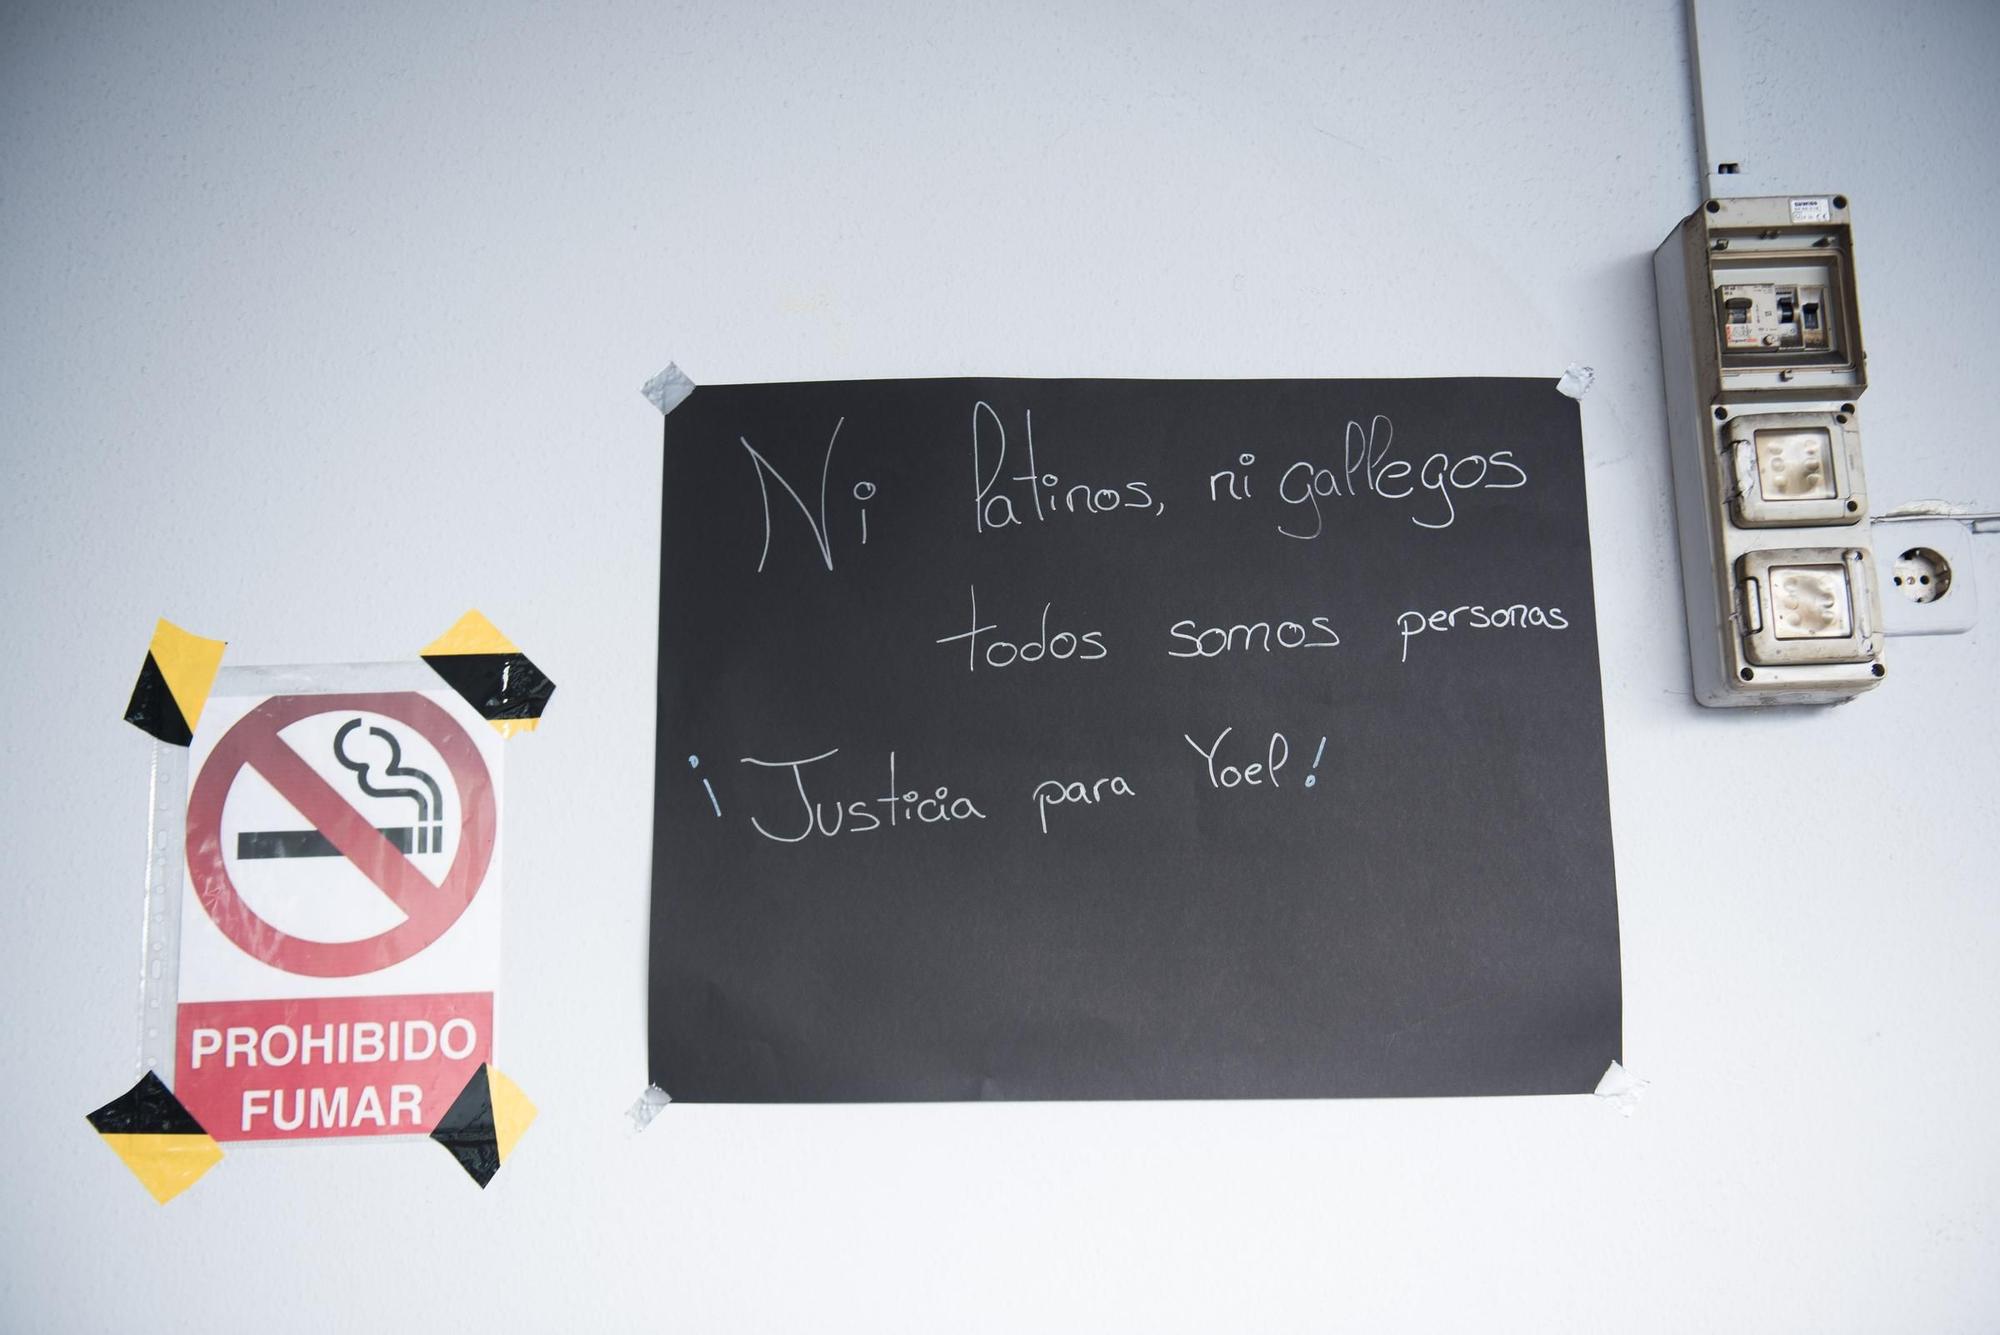 Ni latinos, ni gallegos
todos somos personas
¡Justicia para Yoel!
PROHIBIDO
FUMAR